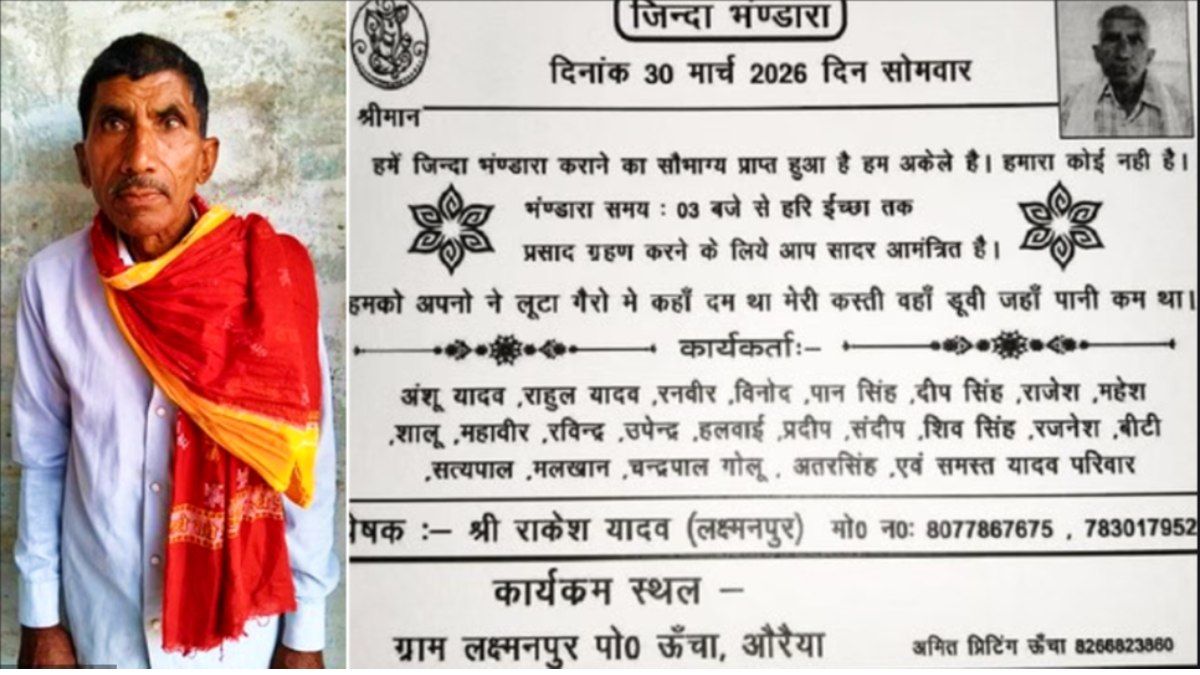 जिन्दा भण्डारा
दिनांक 30 मार्च 2026 दिन सोमवार
श्रीमान
हमें जिन्दा भण्डारा कराने का सौभाग्य प्राप्त हुआ है हम अकेले है। हमारा कोई नही है।
भण्डारा समय : 03 बजे से हरि ईच्छा तक
प्रसाद ग्रहण करने के लिये आप सादर आमंत्रित है।
हमको अपनो ने लूटा गैरो मे कहाँ दम था मेरी कस्ती वहाँ डूवी जहाँ पानी कम था।
कार्यकर्ताः–
अंशू यादव ,राहुल यादव ,रनवीर ,विनोद ,पान सिंह ,दीप सिंह ,राजेश ,महेश
,शालू ,महावीर ,रविन्द्र ,उपेन्द्र ,हलवाई ,प्रदीप ,संदीप ,शिव सिंह ,रजनेश ,बीटी
,सत्यपाल ,मलखान ,चन्द्रपाल गोलू , अतरसिंह ,एवं समस्त यादव परिवार
षक :– श्री राकेश यादव (लक्ष्मनपुर) मो0 न0: 8077867675 , 783017952
कार्यकम स्थल –
ग्राम लक्ष्मनपुर पो0 ऊँचा, औरैया
अमित प्रिटिंग ऊँचा 8266823860